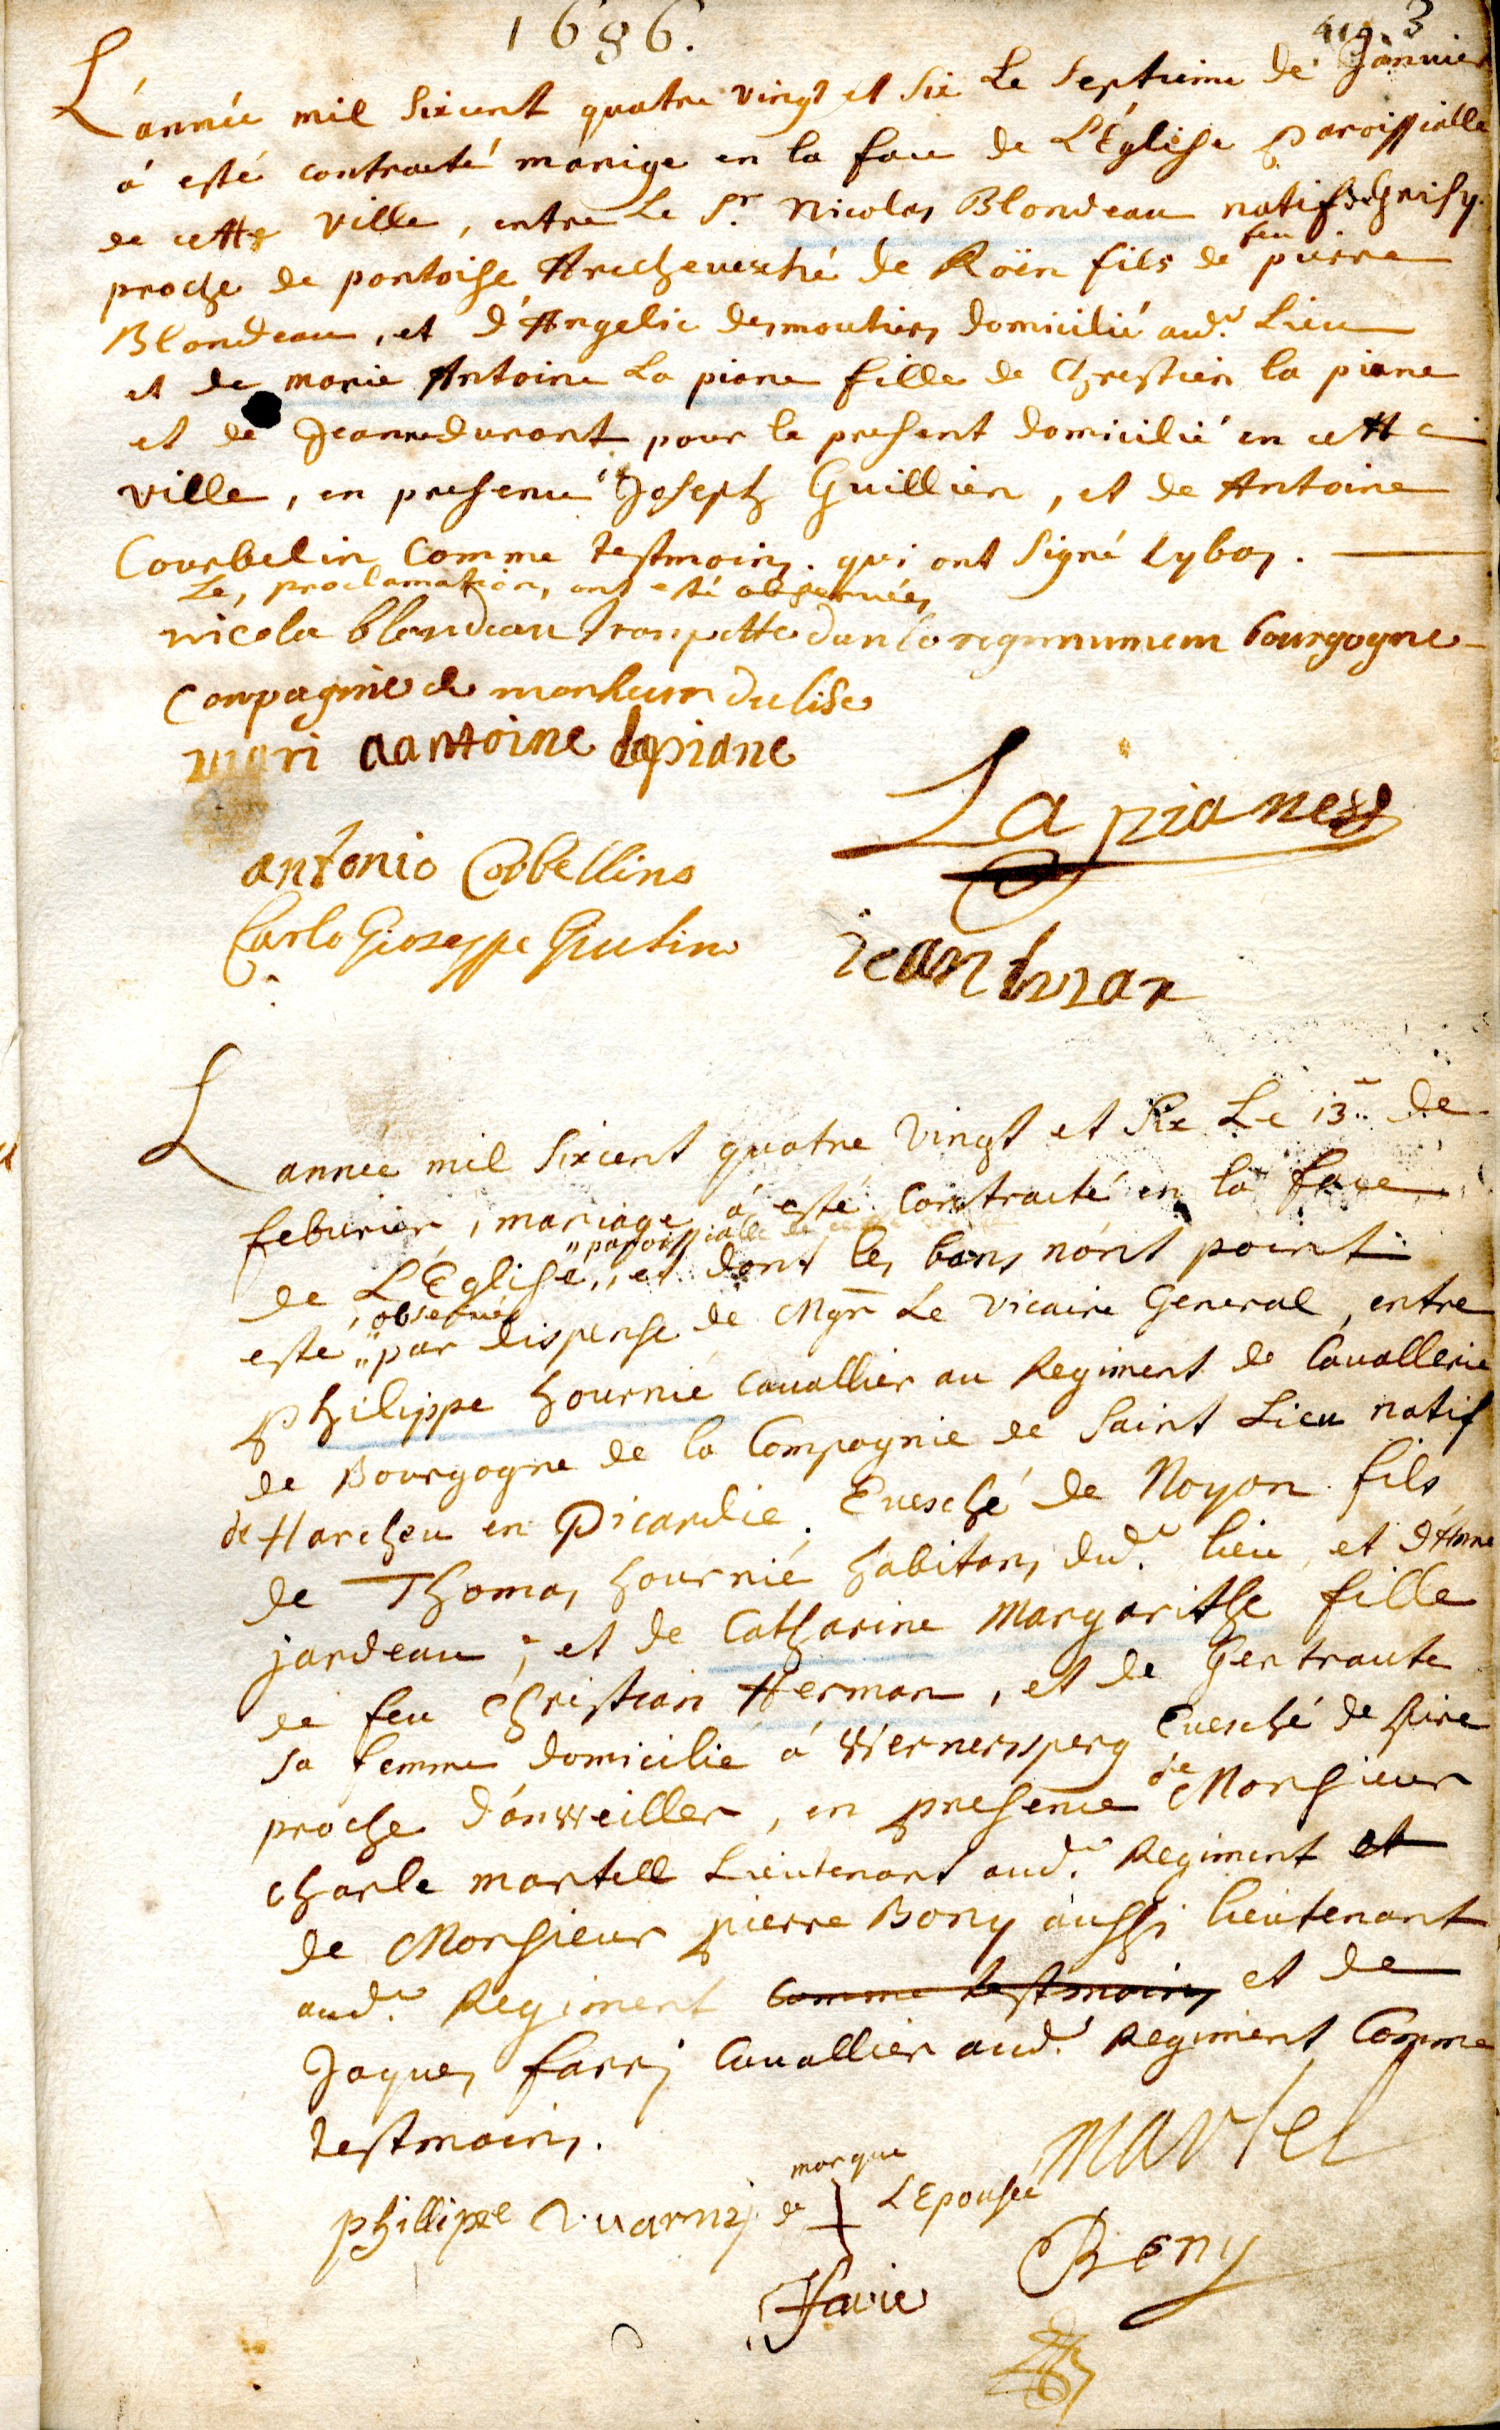 1686.
419. 3
L'année mil sixcent quatre vingt et six Le septieme de Janvier
a esté contracté mariage en la face de L'Église Paroissialle
de cette ville, entre Le Sr. Nicolas Blondeau natif de Grisy
proche de pontoise Archevesché de Roüen fils de feu pierre
Blondeau, et d'Angelic desmoutiers domicilié aud.t Lieu
et de marie Antoine La piane fille de Chrestien la piane
et de Jeanne durant pour le present domicilié en cette
ville, en presence Joseph Guillien, et de Antoine
Courbelin Comme testmoins. qui ont signé Lybas.
Les proclamations ont esté observées
nicola blondeau trompette dan le regimumem bourgogne
compagnie de monsieur
mari aantoine lapiane
Lapiane
antonio Corbellino
Carlo Gioseppe Giutino
iean
L'annee mil sixcent quatre vingt et six Le 13e de
febvrier, mariage a esté Contracté en la face
de L'Église "paroissialle de cette ville, et dont les bans n'ont point
esté "observés par dispense de Mgr Le Vicaire General, entre
Philippe hournié cavallier au Regiment de Cavallerie
de Bourgogne de la Compagnie de Saint Lieu natif
de Harcheu en Picardie. Evesché de Noyon fils
de Thomas hournié habitans dud.t lieu et d'Anne
jardeau, et de Catharine Margarithe fille
de feu Christian Herman, et de Gertraute
sa femme domicilié á Wernersperg Evesché de Spire
proche d'anweiller, en presence de Monsieur
charle martell Lieutenant aud.t Regiment et
de Monsieur pierre Bony aussi lieutenant
aud.t Regiment comme testmoins et de
Jaques farrj Cavallier aud.t Regiment Comme
testmoins.
Martel
phillippe
marque
de L'Epousée
Bony
Favie